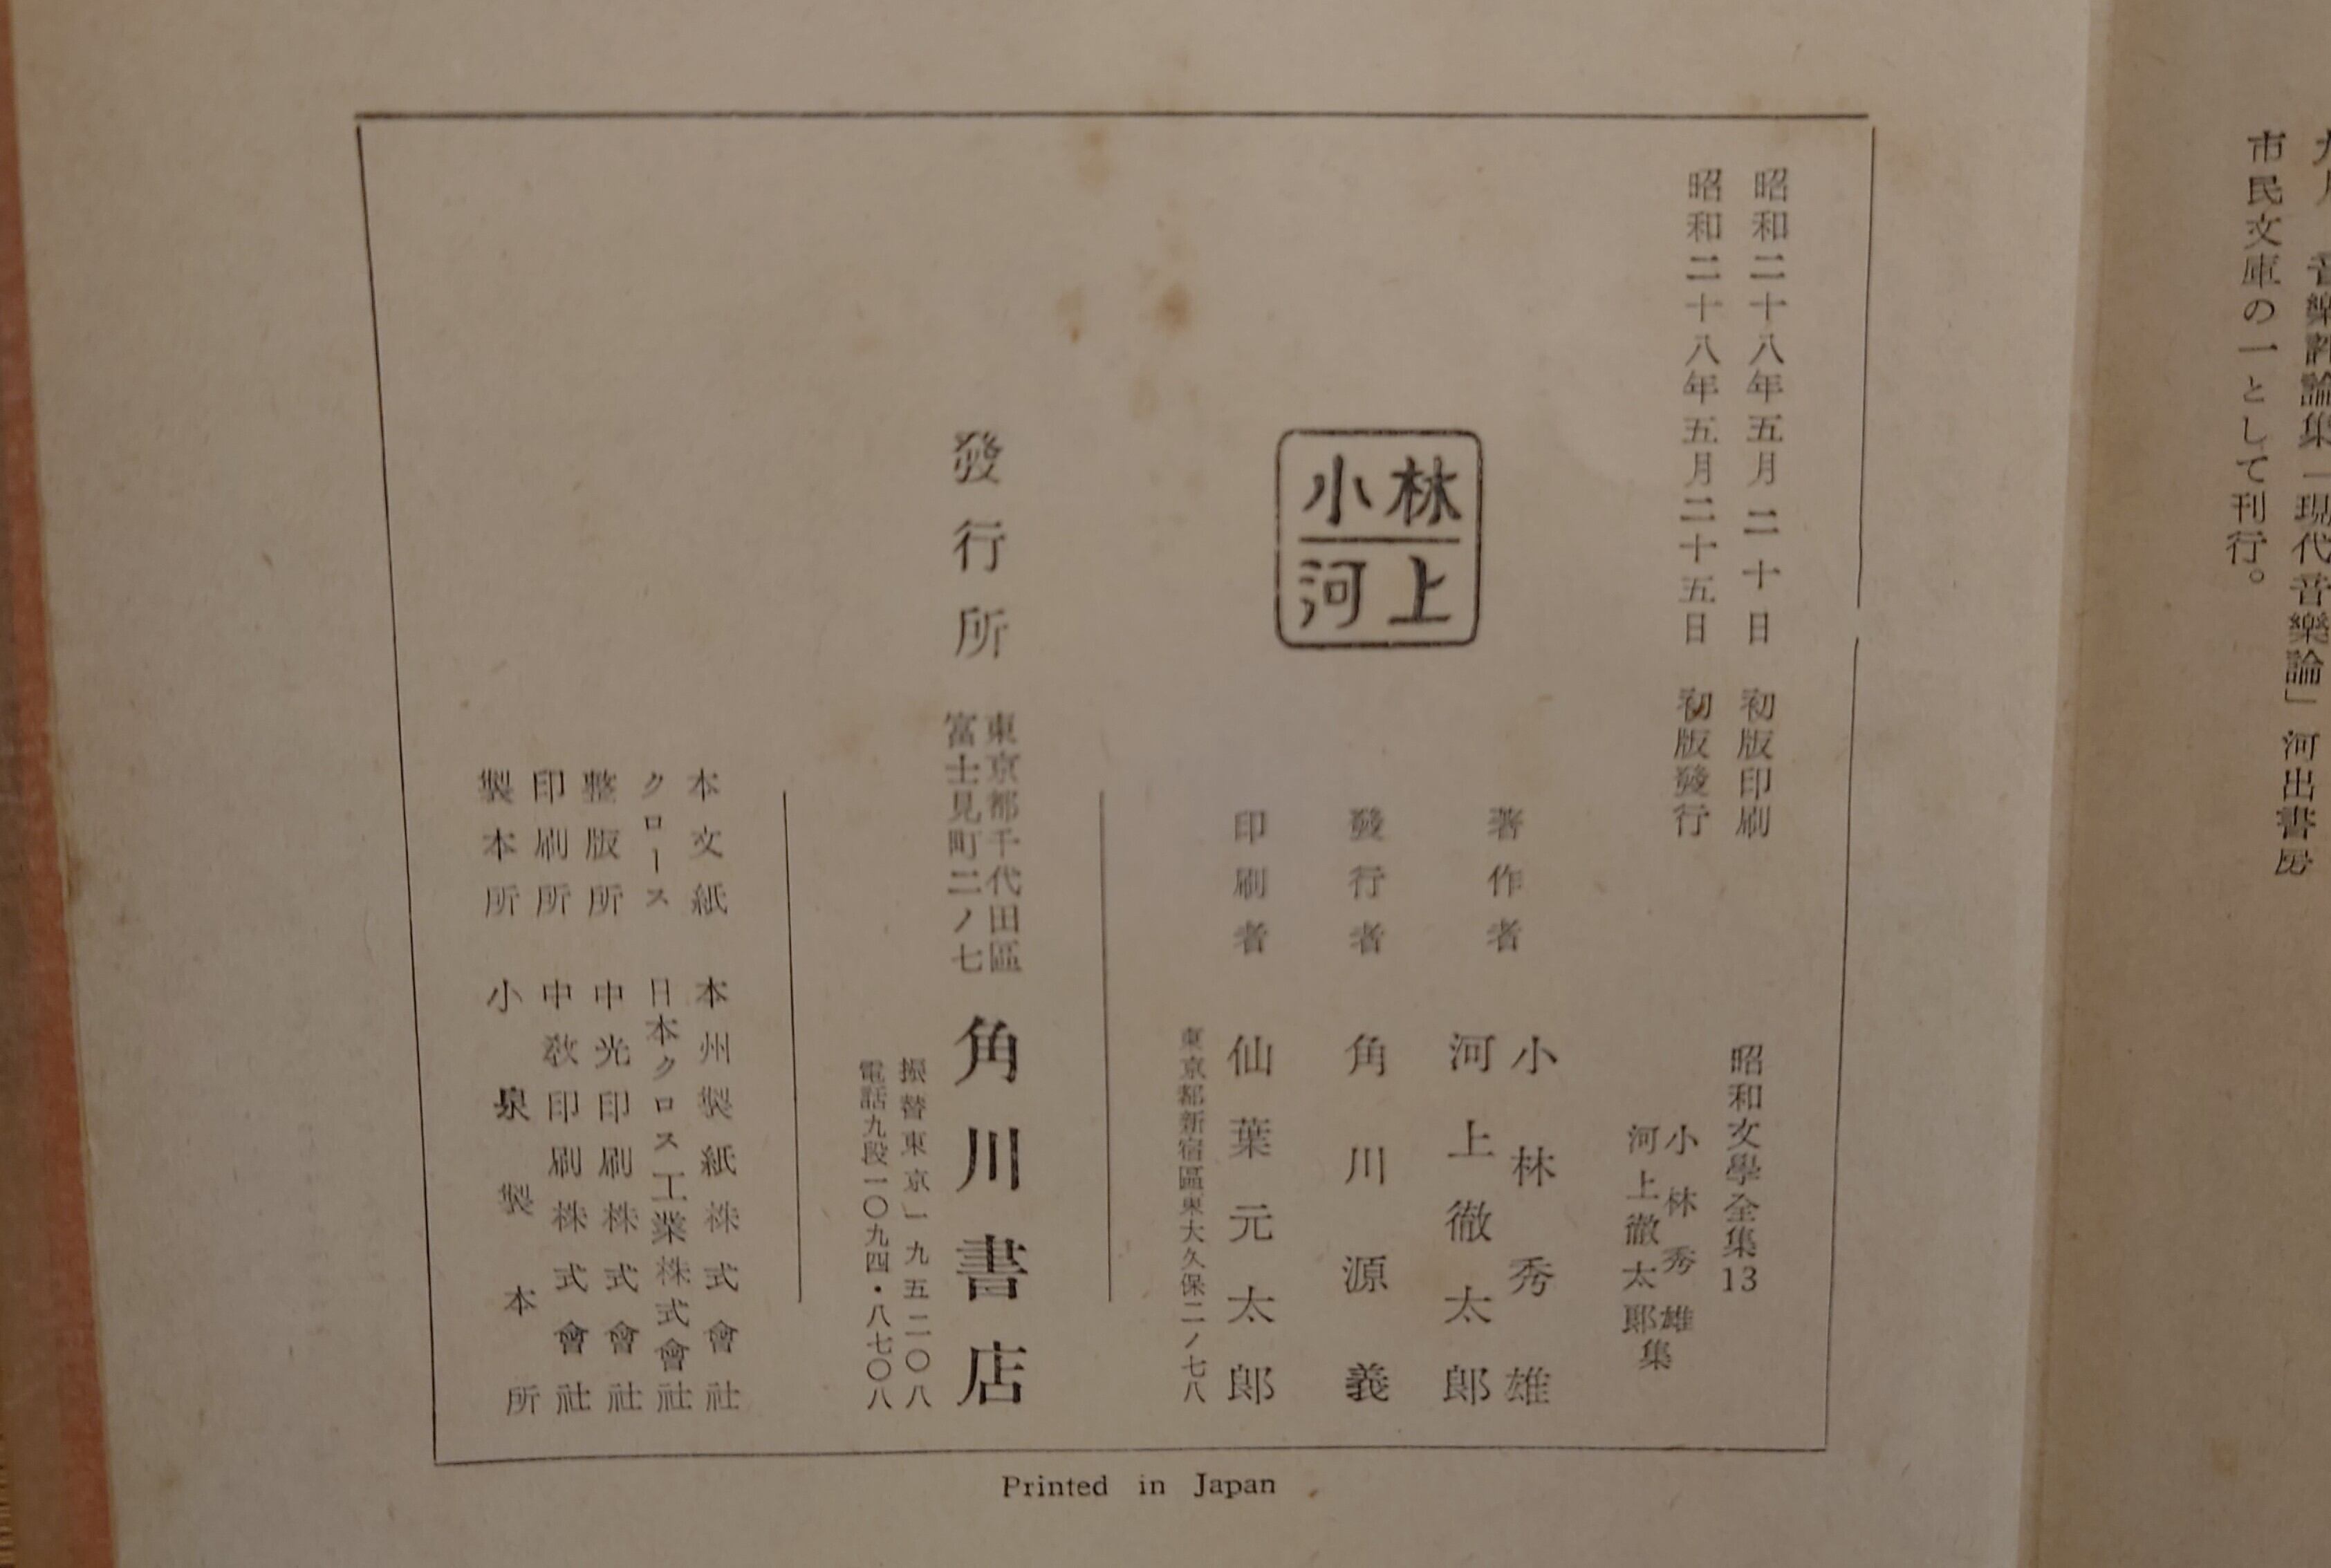 市民文庫の一として刊行。
音樂評論集「現代音樂論」河出書房
昭和二十八年五月二十日 初版印刷
昭和二十八年五月二十五日 初版發行
昭和文學全集13
小林秀雄
河上徹太郎
集
小林
河上
著作者 小林秀雄
河上徹太郎
發行者 角川源義
印刷者 仙葉元太郎
東京都新宿區東大久保二ノ七八
發行所
東京都千代田區
富士見町二ノ七
角川書店
振替東京一九五二〇八
電話九段一〇九四・八七〇八
本文紙 本州製紙株式會社
クロース 日本クロス工業株式會社
整版所 中光印刷株式會社
印刷所 中教印刷株式會社
製本所 小泉製本所
Printed in Japan